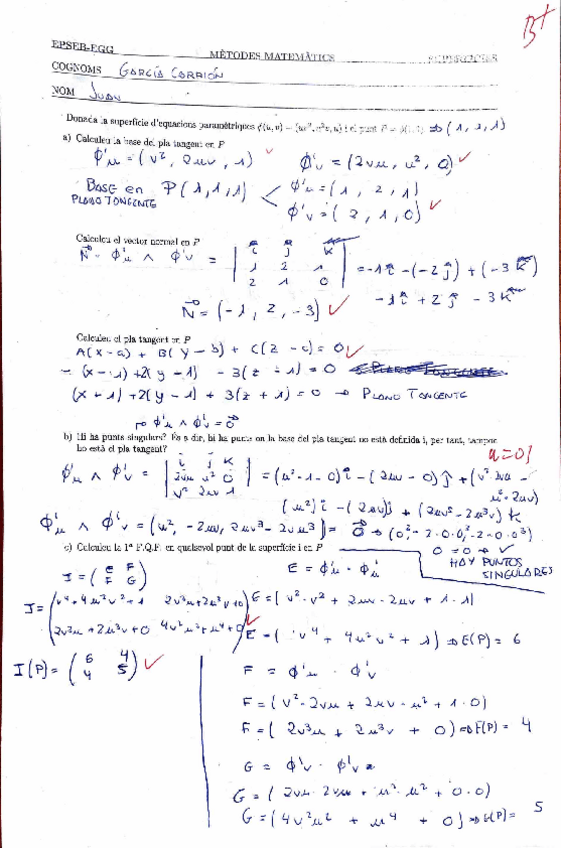 B+
EPSEB-EGG MÈTODES MATEMÀTICS SUPERFÍCIES
COGNOMS GARCÍA CARRIÓN
NOM JUAN
Donada la superfície d'equacions paramètriques ϕ(u, v) = (uv², u²v, u) i el punt P = ϕ(1, 1) ⇒ (1, 1, 1)
a) Calculeu la base del pla tangent en P
ϕ'u = (v², 2uv, 1) ϕ'v = (2vu, u², 0) ✓
BASE en P(1, 1, 1) < ϕ'u = (1, 2, 1)
PLANO TANGENTE ϕ'v = (2, 1, 0) ✓
Calculeu el vector normal en P
N = ϕ'u ∧ ϕ'v = | i j k | 1 2 1 | 2 1 0 | = -1i - (-2j) + (-3k)
-1i + 2j - 3k
N = (-1, 2, -3) ✓
Calculeu el pla tangent en P
A(x-a) + B(y-b) + C(z-c) = 0 ✓
-(x-1) + 2(y-1) - 3(z-1) = 0
(x+1) + 2(y-1) + 3(z+1) = 0 → PLANO TANGENTE
→ ϕ'u ∧ ϕ'v = 0
b) Hi ha punts singulars? És a dir, hi ha punts on la base del pla tangent no està definida i, per tant, tampoc
ho està el pla tangent?
u=0
ϕ'u ∧ ϕ'v = | i j k | 2vu u² 0 | v² 2uv 1 | = (u²·1-0)i - (2uv-0)j + (v²·2vu - u²·2uv)
(u²)i - (2uv)j + (2uv³ - 2u³v)k
ϕ'u ∧ ϕ'v = (u², -2uv, 2uv³ - 2vu³) = 0 → (0², -2·0·0, 2·0·0³)
0 = 0 → ✓
HAY PUNTOS
SINGULARES
c) Calculeu la 1ª F.Q.F. en qualsevol punt de la superfície i en P
I = (E F / F G) E = ϕ'u · ϕ'u
I = (v⁴+4u²v²+1 2v³u+2u³v+0 E = (v²·v² + 2uv·2uv + 1·1)
2v³u+2u³v+0 4v²u²+u⁴+0) ✓ E = (v⁴ + 4u²v² + 1) ⇒ E(P) = 6
I(P) = (6 4 / 4 5) ✓
F = ϕ'u · ϕ'v
F = (v²·2vu + 2uv·u² + 1·0)
F = (2v³u + 2u³v + 0) ⇒ F(P) = 4
G = ϕ'v · ϕ'v =
G = (2vu·2vu + u²·u² + 0·0)
G = (4v²u² + u⁴ + 0) ⇒ G(P) = 5